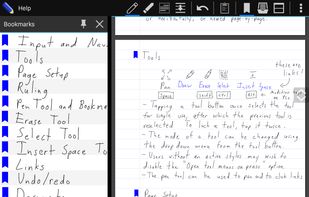 Help
Bookmarks
Input and Nav
Tools
Page Setup
Ruling
Pen Tool and Bookma
Erase Tool
Select Tool
Insert Space To
Links
Undo/redo
or horizontally, or viewed page-by-page.
Tools
these are
links!
Pan Draw Erase Select Insert Space
Space shift ctrl alt
- Tapping a tool button once selects the tool
for single use, after which the previous tool is
reselected. To lock a tool, tap it twice.
- The mode of a tool can be changed using
the drop down menu from the tool button.
- Users without an active stylus may wish to
disable the "Open tool menus on press" option.
- The pan tool can be used to pan and to click links
Page Setup